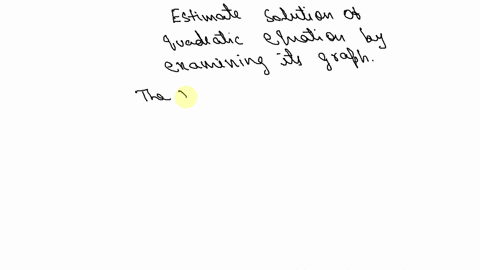 Estimate solution of
quadratic equation by
examining its graph.
The